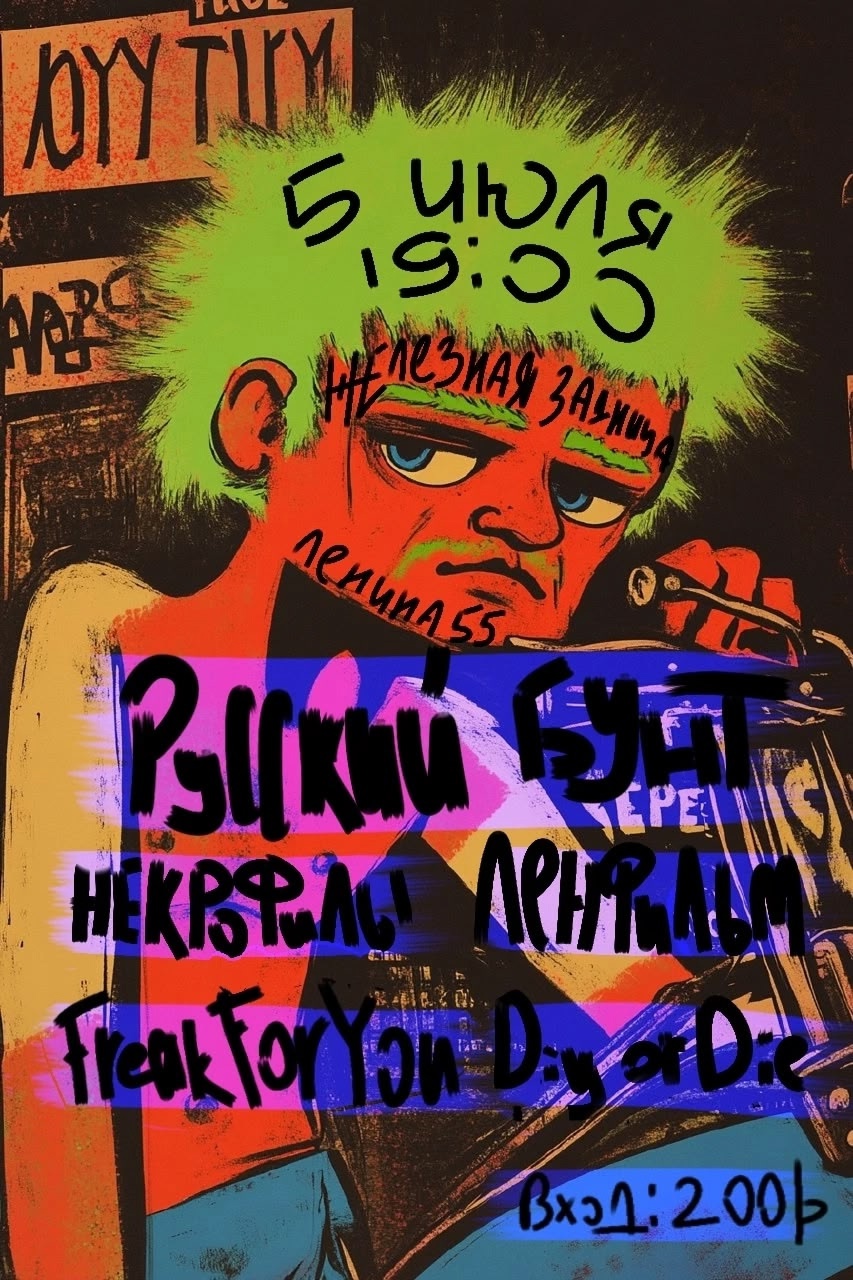 5 июля
19:00
Железная задница
Ленина 55
Русский Бунт
НЕКРОФилы ЛЕНФильм
FreakForYou Diy or Die
Вход: 200р